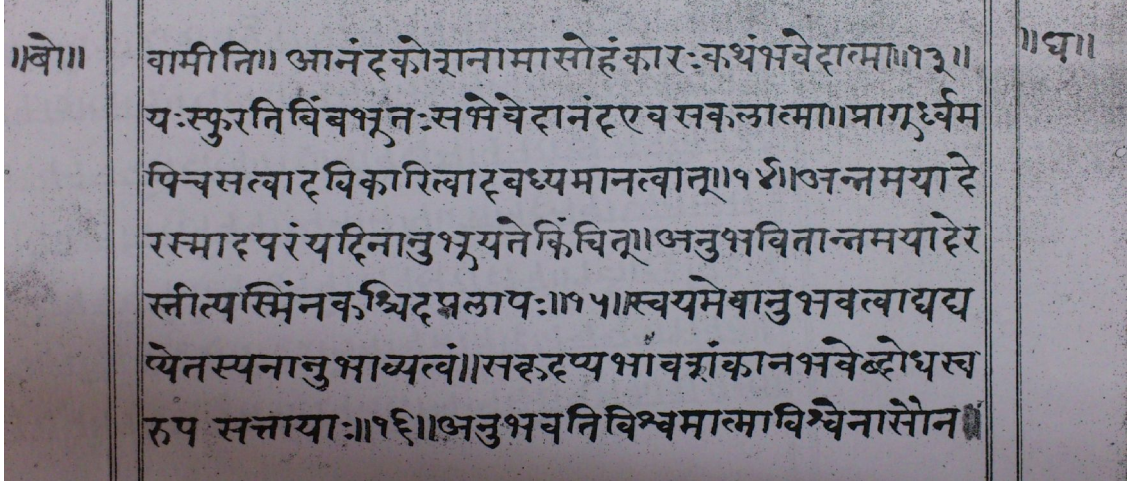 ॥बो॥
वामीति॥ आनंदकोशनामासोहंकारःकथंभवेदात्मा॥१३॥
॥ध॥
यःस्फुरतिबिंबभुतःसभवेदानंदएवसकलात्मा॥प्रागुर्ध्वम
पिचसत्वादविकारित्वादबध्यमानत्वात्॥१४॥अन्नमयादे
रस्मादपरंयदिनानुभुयतेकिंचित्॥अनुभवितान्नमयादेर
स्तीत्यस्मिंनकश्चिदपलापः॥१५॥स्वयमेवानुभवत्वाद्यद्य
प्येतस्यनानुभाव्यत्वं॥सकृदप्यभावशंकानभवेब्दोधस्व
रुप सत्तायाः॥१६॥अनुभवतिविश्वमात्माविश्वेनासौन